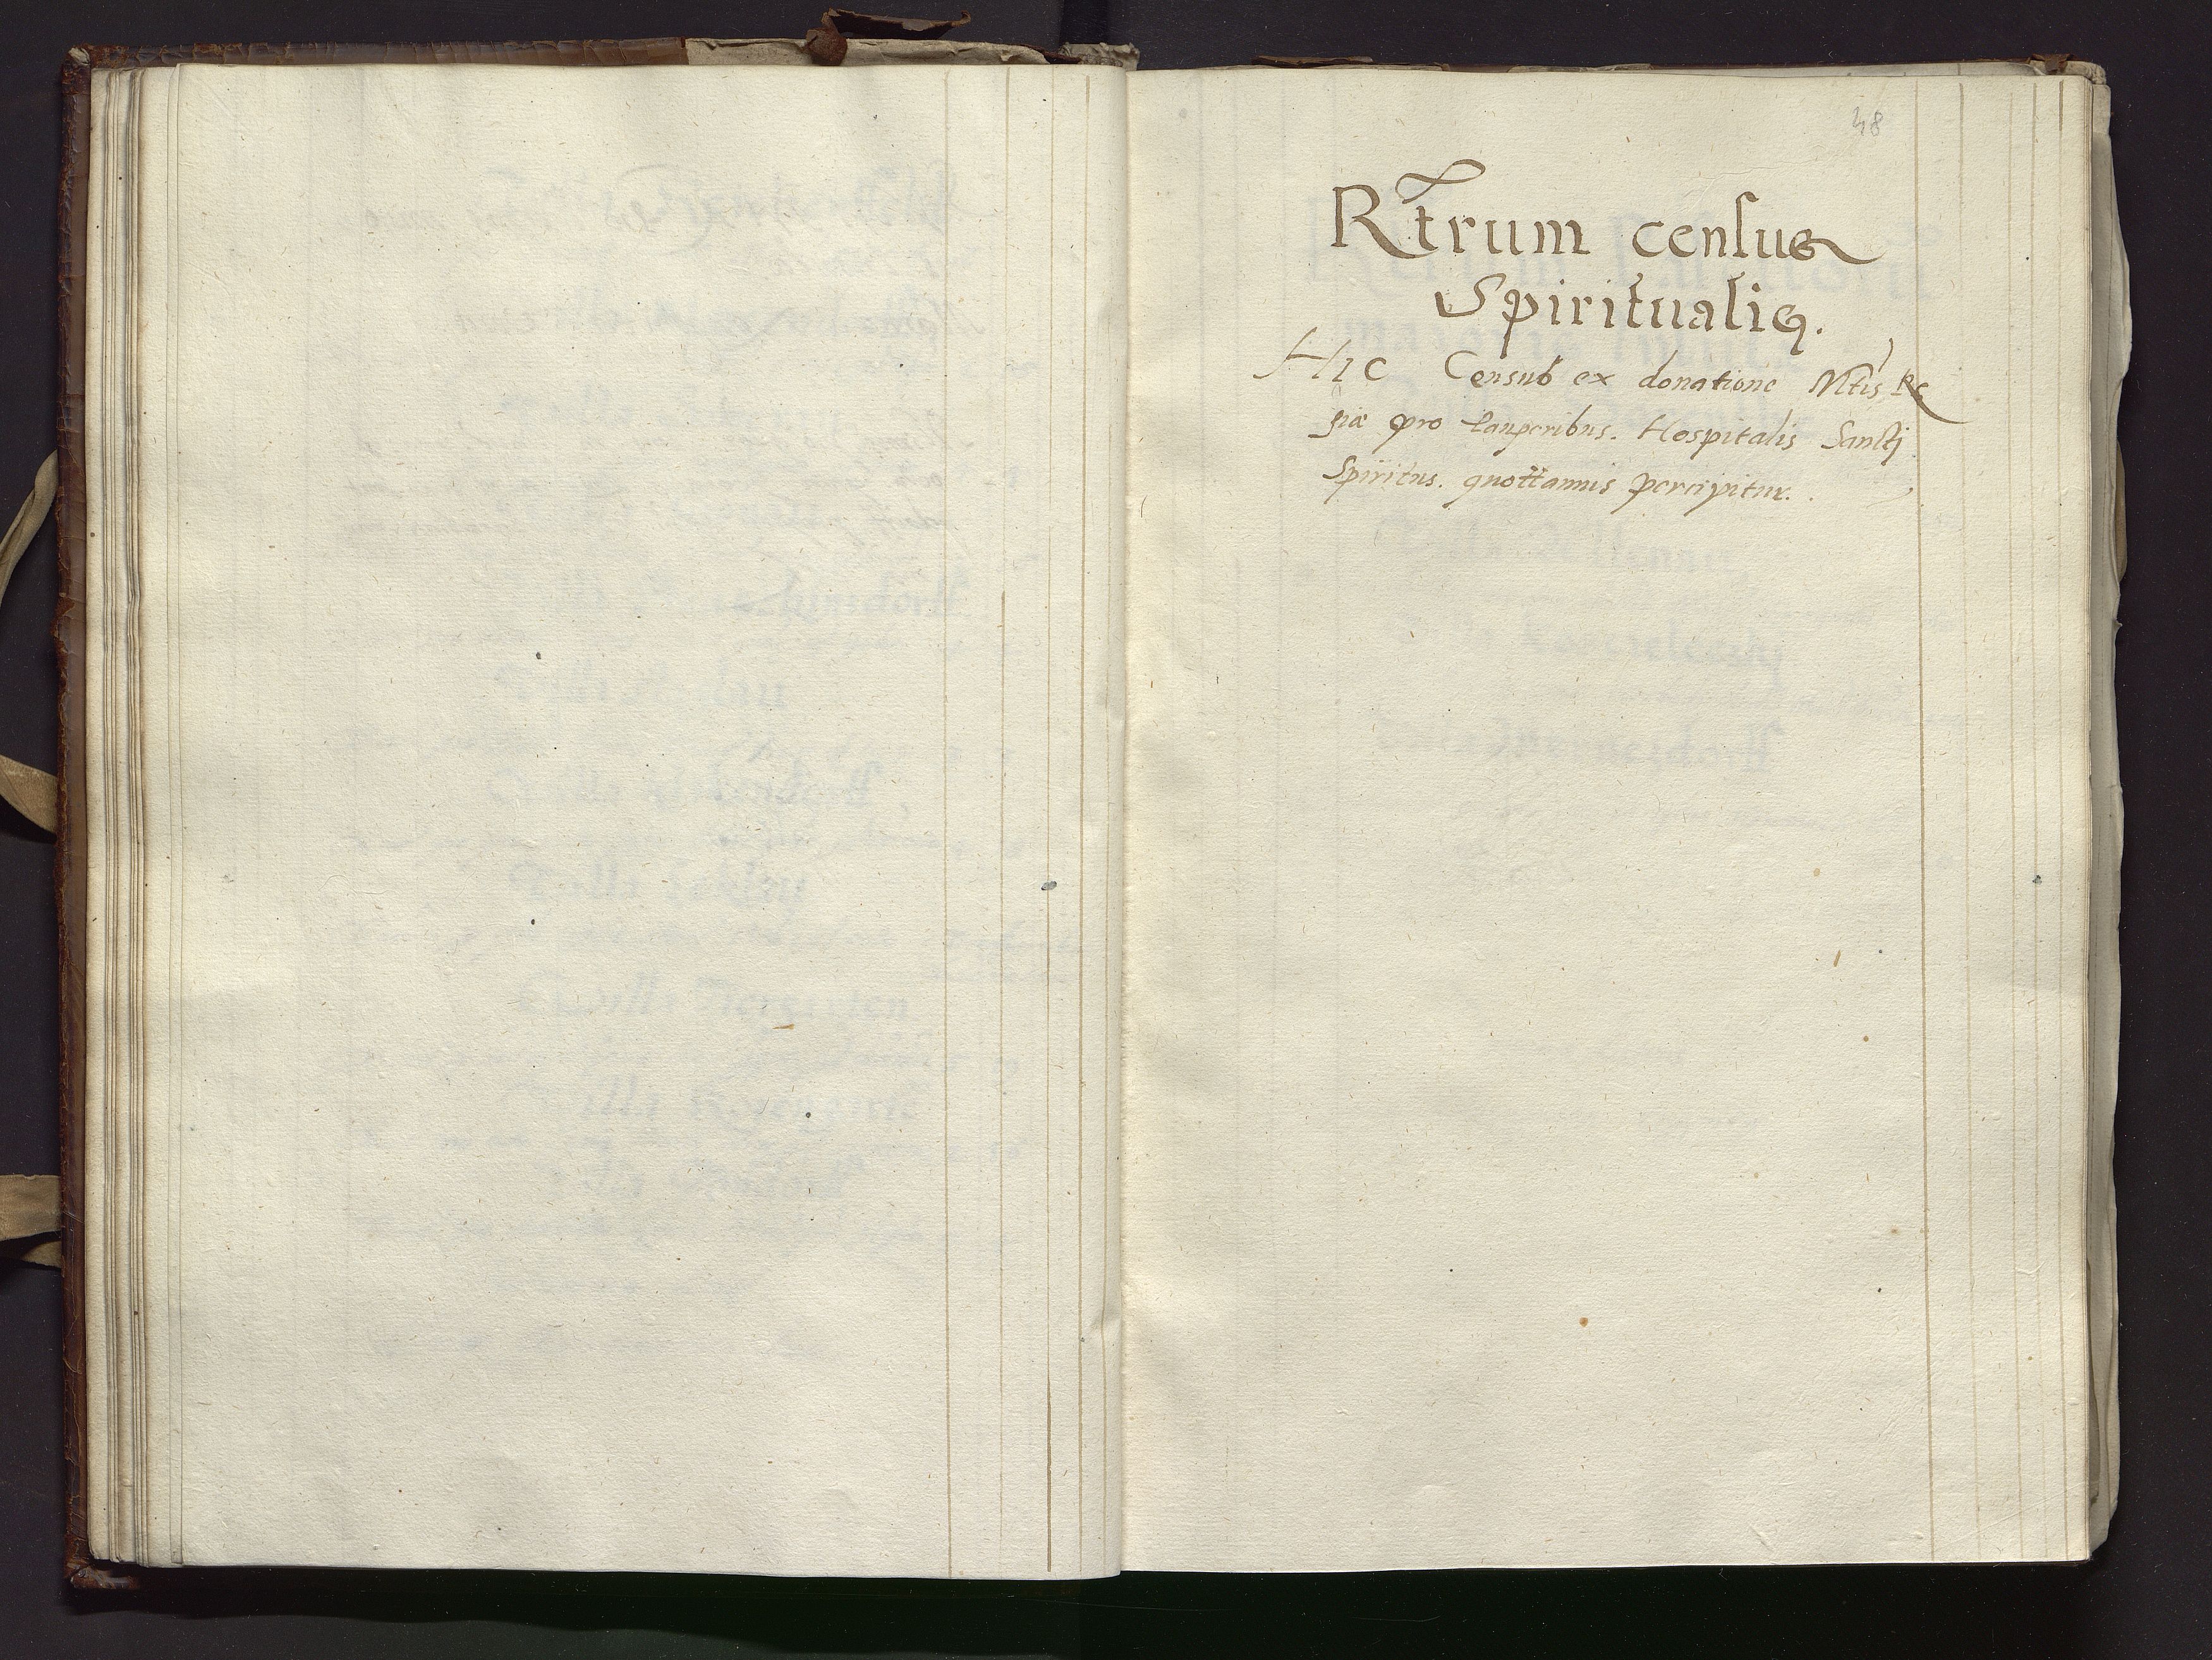 48
Rtrum census
Spiritualis.
Hic Census ex donatione Mtis Re
giæ pro Pauperibus. Hospitalis Sancti
Spiritus. quottannis percipitur.